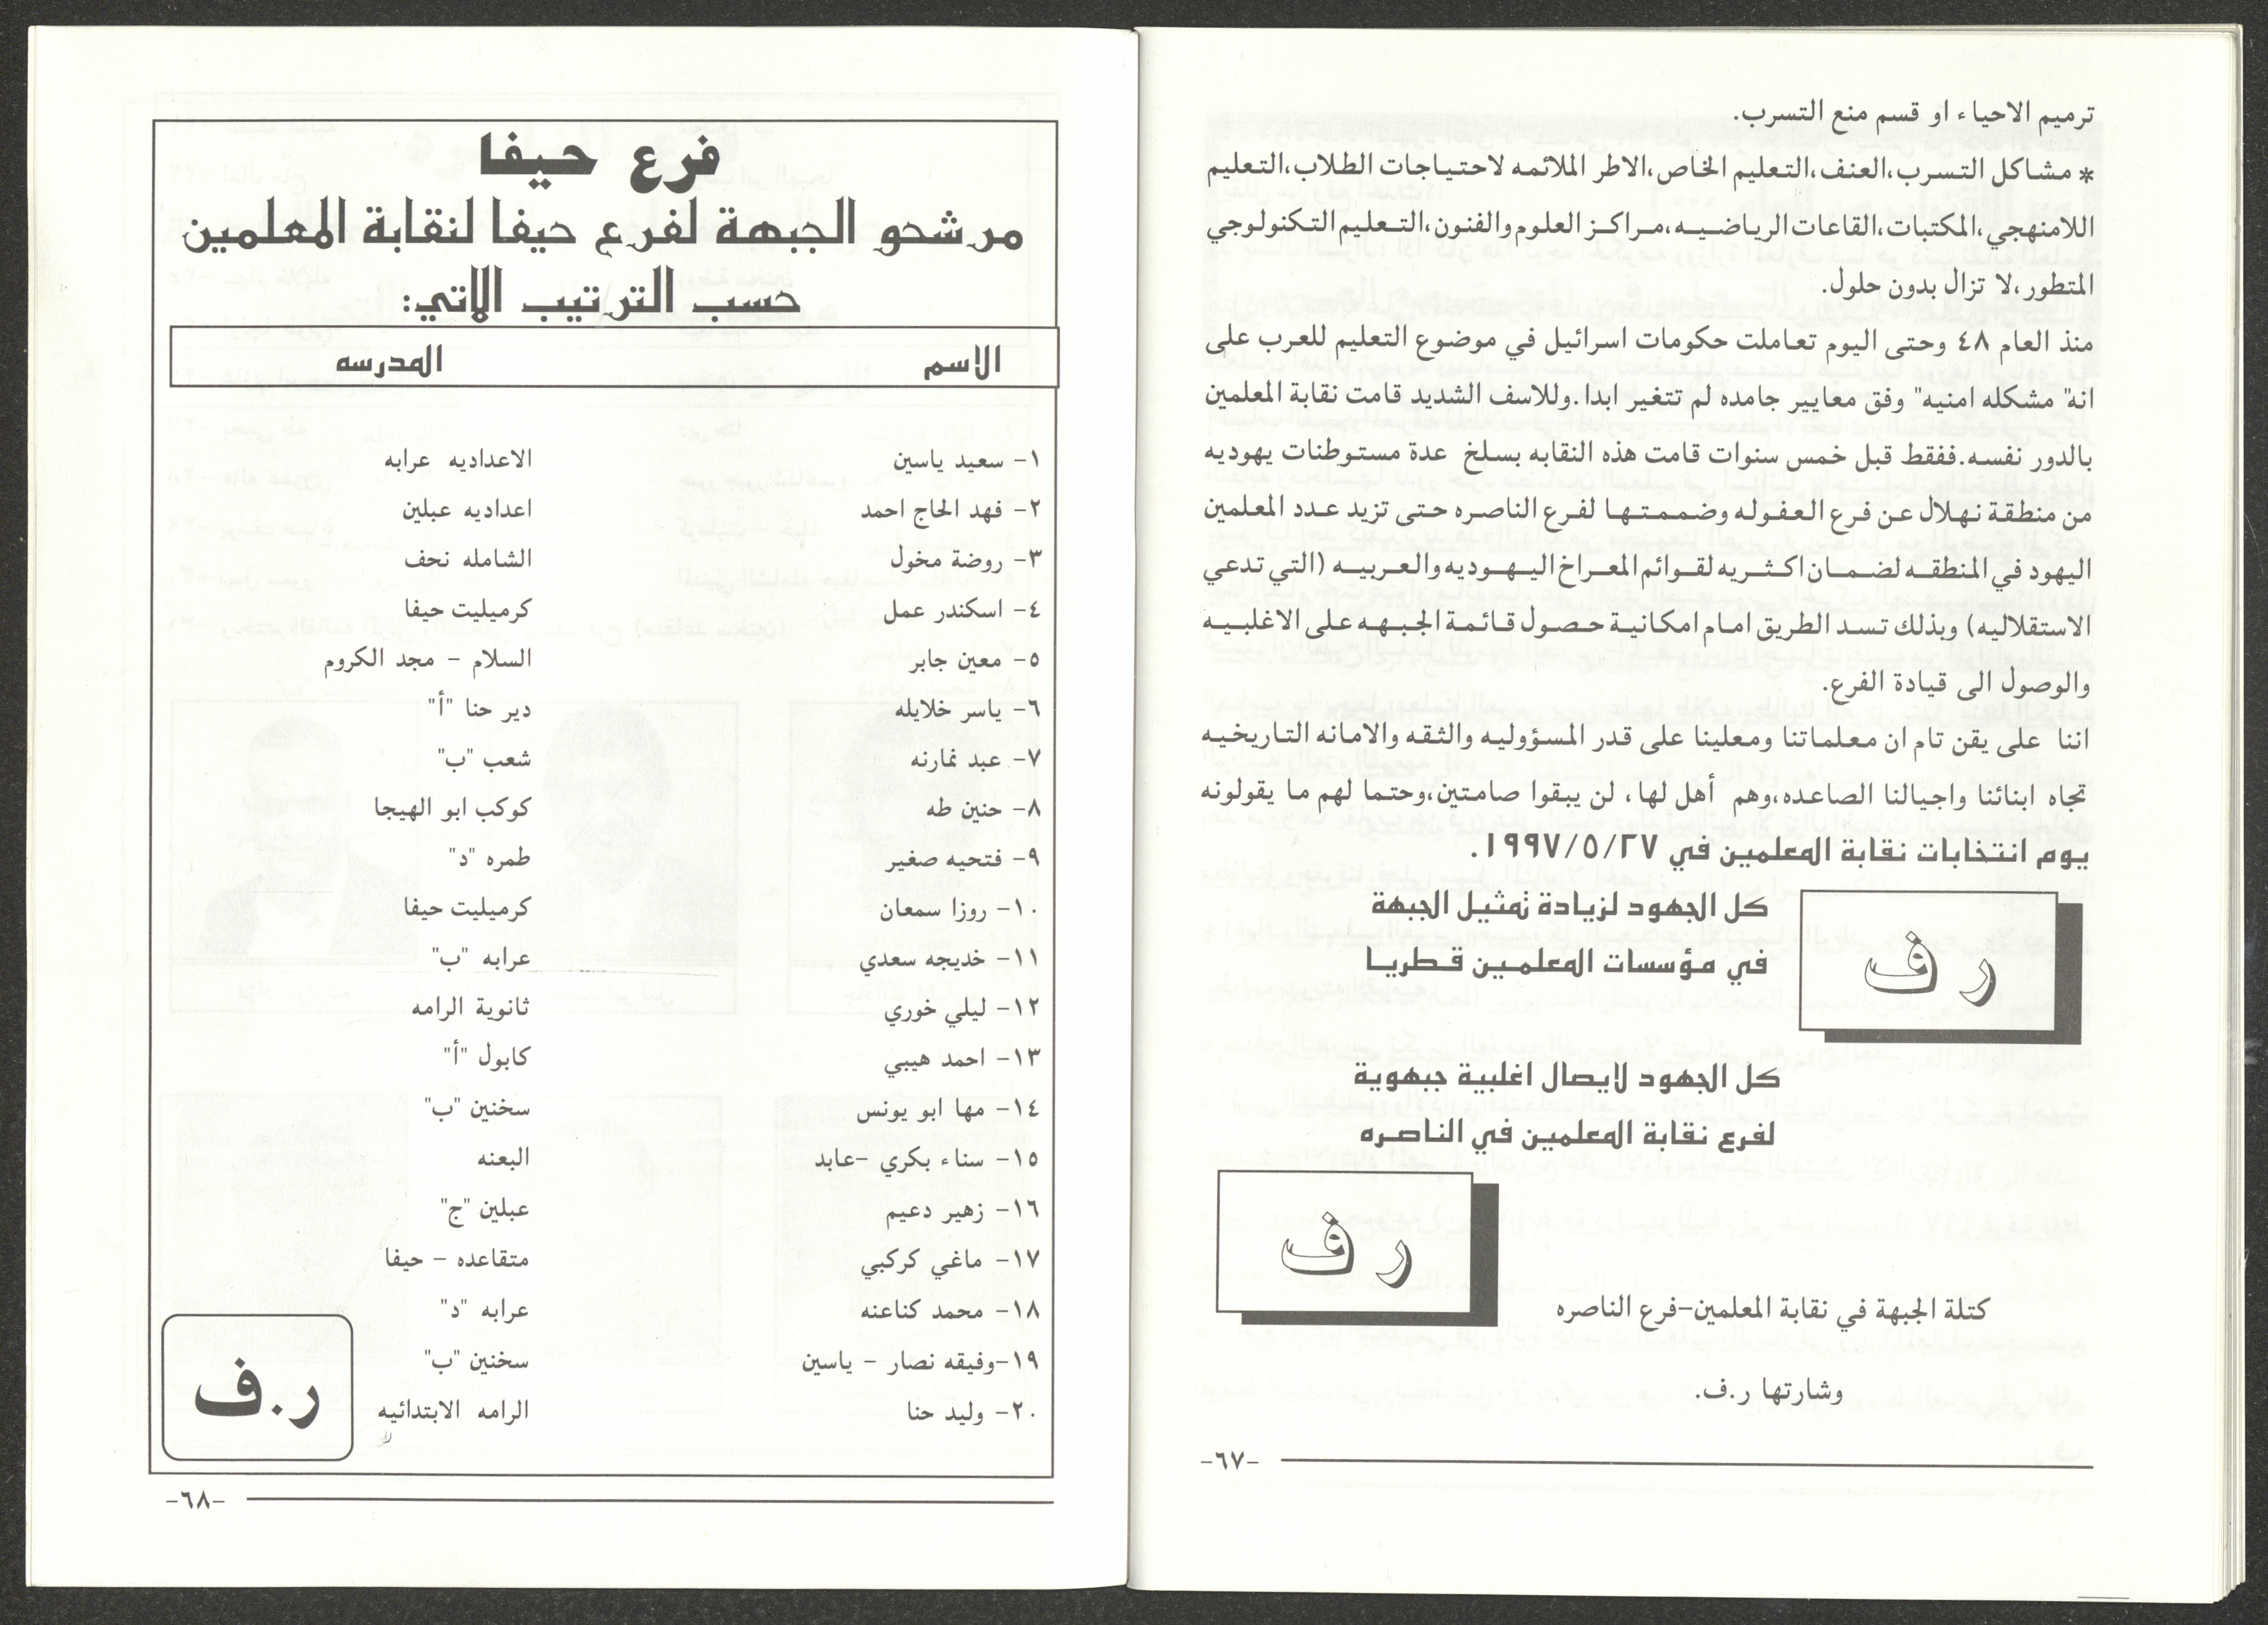 ترميم الاحياء او قسم منع التسرب.
* مشاكل التسرب،العنف،التعليم الخاص،الاطر الملائمه لاحتياجات الطلاب،التعليم
اللامنهجي،المكتبات،القاعات الرياضيه،مراكز العلوم والفنون،التعليم التكنولوجي
المتطور،لا تزال بدون حلول.
منذ العام ٤٨ وحتى اليوم تعاملت حكومات اسرائيل في موضوع التعليم للعرب على
انه" مشكله امنيه" وفق معايير جامده لم تتغير ابدا.وللاسف الشديد قامت نقابة المعلمين
بالدور نفسه.ففقط قبل خمس سنوات قامت هذه النقابه بسلخ عدة مستوطنات يهوديه
من منطقة نهلال عن فرع العفوله وضممتها لفرع الناصره حتى تزيد عدد المعلمين
اليهود في المنطقه لضمان اكثريه لقوائم المعراخ اليهوديه والعربيه (التي تدعي
الاستقلاليه) وبذلك تسد الطريق امام امكانية حصول قائمة الجبهه على الاغلبيه
والوصول الى قيادة الفرع.
اننا على يقن تام ان معلماتنا ومعلينا على قدر المسؤوليه والثقه والامانه التاريخيه
تجاه ابنائنا واجيالنا الصاعده،وهم أهل لها، لن يبقوا صامتين،وحتما لهم ما يقولونه
يوم انتخابات نقابة المعلمين في ١٩٩٧/٥/٢٧.
كل الجهود لزيادة تمثيل الجبهة
في مؤسسات المعلمين قطريا
ر ف
كل الجهود لايصال اغلبية جبهوية
لفرع نقابة المعلمين في الناصره
ر ف
كتلة الجبهة في نقابة المعلمين-فرع الناصره
وشارتها ر.ف.
-٦٧-
فرع حيفا
مرشحو الجبهة لفرع حيفا لنقابة المعلمين
حسب الترتيب الآتي:
الاسم المدرسه
١- سعيد ياسين الاعداديه عرابه
٢- فهد الحاج احمد اعداديه عبلين
٣- روضة مخول الشامله نحف
٤- اسكندر عمل كرميليت حيفا
٥- معين جابر السلام - مجد الكروم
٦- ياسر خلايله دير حنا "أ"
٧- عبد نمارنه شعب "ب"
٨- حنين طه كوكب ابو الهيجا
٩- فتحيه صغير طمره "د"
١٠- روزا سمعان كرميليت حيفا
١١- خديجه سعدي عرابه "ب"
١٢- ليلي خوري ثانوية الرامه
١٣- احمد هيبي كابول "أ"
١٤- مها ابو يونس سخنين "ب"
١٥- سناء بكري -عابد البعنه
١٦- زهير دعيم عبلين "ج"
١٧- ماغي كركبي متقاعده - حيفا
١٨- محمد كناعنه عرابه "د"
١٩-وفيقه نصار - ياسين سخنين "ب"
٢٠- وليد حنا الرامه الابتدائيه
ر.ف
-٦٨-